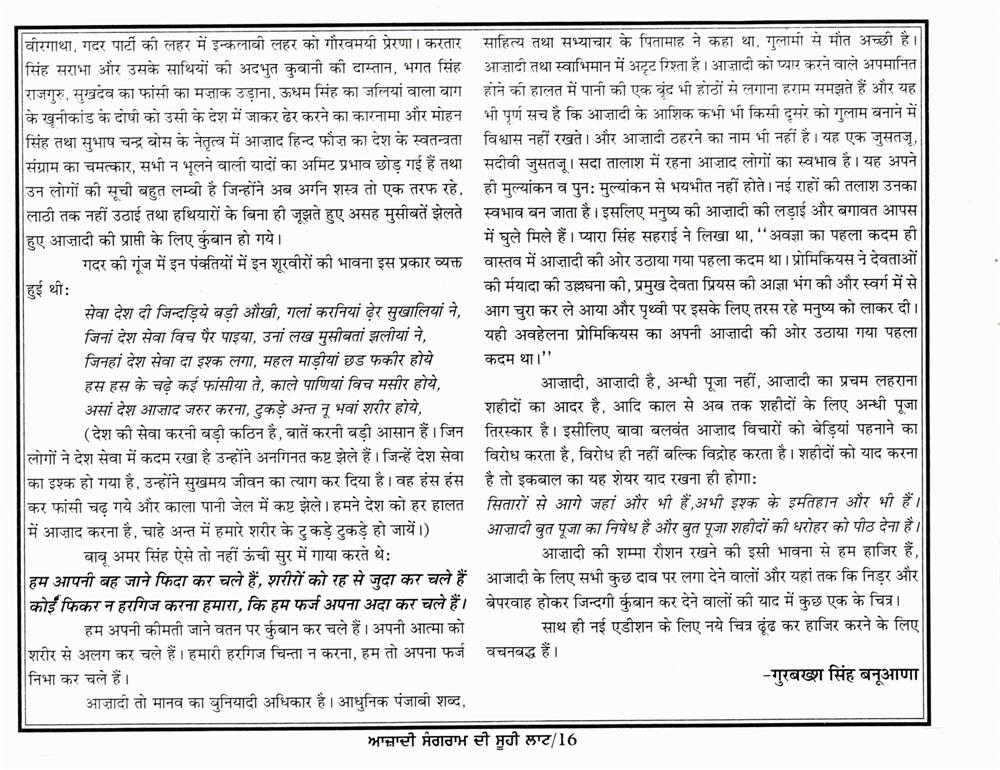 वीरगाथा, गदर पार्टी की लहर में इन्कलाबी लहर को गौरवमयी प्रेरणा। करतार
सिंह सराभा और उसके साथियों की अदभुत कुबानी की दास्तान, भगत सिंह
राजगुरु, सुखदेव का फांसी का मज़ाक उड़ाना, ऊधम सिंह का जलियां वाला बाग
के खूनीकांड के दोषी को उसी के देश में जाकर ढेर करने का कारनामा और मोहन
सिंह तथा सुभाष चन्द्र बोस के नेतृत्व में आज़ाद हिन्द फौज़ का देश के स्वतन्त्रता
संग्राम का चमत्कार, सभी न भूलने वाली यादों का अमिट प्रभाव छोड़ गई हैं तथा
उन लोगों की सूची बहुत लम्बी है जिन्होंने अब अग्नि शस्त्र तो एक तरफ रहे,
लाठी तक नहीं उठाई तथा हथियारों के बिना ही जूझते हुए असह मुसीबतें झेलते
हुए आज़ादी की प्राप्ती के लिए र्कुबान हो गये।
गदर की गूंज में इन पंक्तियों में इन शूरवीरों की भावना इस प्रकार व्यक्त
हुई थी:
सेवा देश दी जिन्दड़िये बड़ी औखी, गलां करनियां ढ़ेर सुखालियां ने,
जिनां देश सेवा विच पैर पाइया, उनां लख मुसीबतां झलीयां ने,
जिनहां देश सेवा दा इश्क लगा, महल माड़ीयां छड फकीर होये
हस हस के चढ़े कई फांसीया ते, काले पाणियां विच मसीर होये,
असां देश आज़ाद जरुर करना, टुकड़े अन्त नू भवां शरीर होये,
(देश की सेवा करनी बड़ी कठिन है, बातें करनी बड़ी आसान हैं। जिन
लोगों ने देश सेवा में कदम रखा है उन्होंने अनगिनत कष्ट झेले हैं। जिन्हें देश सेवा
का इश्क हो गया है, उन्होंने सुखमय जीवन का त्याग कर दिया है। वह हंस हंस
कर फांसी चढ़ गये और काला पानी जेल में कष्ट झेले। हमने देश को हर हालत
में आज़ाद करना है, चाहे अन्त में हमारे शरीर के टुकड़े टुकड़े हो जायें।)
बाबू अमर सिंह ऐसे तो नहीं ऊंची सुर में गाया करते थे:
हम आपनी बह जाने फिदा कर चले हैं, शरीरों को रह से जुदा कर चले हैं
कोई फिकर न हरगिज करना हमारा, कि हम फर्ज अपना अदा कर चले हैं।
हम अपनी कीमती जाने वतन पर र्कुबान कर चले हैं। अपनी आत्मा को
शरीर से अलग कर चले हैं। हमारी हरगिज चिन्ता न करना, हम तो अपना फर्ज
निभा कर चले हैं।
आज़ादी तो मानव का बुनियादी अधिकार है। आधुनिक पंजाबी शब्द,
साहित्य तथा सभ्याचार के पितामाह ने कहा था, गुलामी से मौत अच्छी है।
आज़ादी तथा स्वाभिमान में अटूट रिश्ता है। आज़ादी को प्यार करने वाले अपमानित
होने की हालत में पानी की एक बूंद भी होठों से लगाना हराम समझते हैं और यह
भी पूर्ण सच है कि आजादी के आशिक कभी भी किसी दूसरे को गुलाम बनाने में
विश्वास नहीं रखते। और आज़ादी ठहरने का नाम भी नहीं है। यह एक जुसतजू,
सदीवी जुसतजू। सदा तालाश में रहना आज़ाद लोगों का स्वभाव है। यह अपने
ही मुल्यांकन व पुन: मुल्यांकन से भयभीत नहीं होते। नई राहों की तलाश उनका
स्वभाव बन जाता है। इसलिए मनुष्य की आज़ादी की लड़ाई और बगावत आपस
में घुले मिले हैं। प्यारा सिंह सहराई ने लिखा था, ''अवज्ञा का पहला कदम ही
वास्तव में आज़ादी की ओर उठाया गया पहला कदम था। प्रोमिकियस ने देवताओं
की र्मयादा की उल्लघना की, प्रमुख देवता प्रियस की आज्ञा भंग की और स्वर्ग में से
आग चुरा कर ले आया और पृथ्वी पर इसके लिए तरस रहे मनुष्य को लाकर दी।
यही अवहेलना प्रोमिकियस का अपनी आज़ादी की ओर उठाया गया पहला
कदम था।''
आज़ादी, आज़ादी है, अन्धी पूजा नहीं, आज़ादी का प्रचम लहराना
शहीदों का आदर है, आदि काल से अब तक शहीदों के लिए अन्धी पूजा
तिरस्कार है। इसीलिए बावा बलवंत आज़ाद विचारों को बेड़ियां पहनाने का
विरोध करता है, विरोध ही नहीं बल्कि विद्रोह करता है। शहीदों को याद करना
है तो इकबाल का यह शेयर याद रखना ही होगा:
सितारों से आगे जहां और भी हैं,अभी इश्क के इमतिहान और भी हैं।
आज़ादी बुत पूजा का निषेध है और बुत पूजा शहीदों की धरोहर को पीठ देना है।
आज़ादी की शम्मा रौशन रखने की इसी भावना से हम हाजिर हैं,
आजादी के लिए सभी कुछ दाव पर लगा देने वालों और यहां तक कि निडर और
बेपरवाह होकर जिन्दगी र्कुबान कर देने वालों की याद में कुछ एक के चित्र।
साथ ही नई एडीशन के लिए नये चित्र ढूंढ कर हाजिर करने के लिए
वचनबद्ध हैं।
-गुरबख्श सिंह बनूआणा
ਆਜ਼ਾਦੀ ਸੰਗਰਾਮ ਦੀ ਸੂਹੀ ਲਾਟ/16